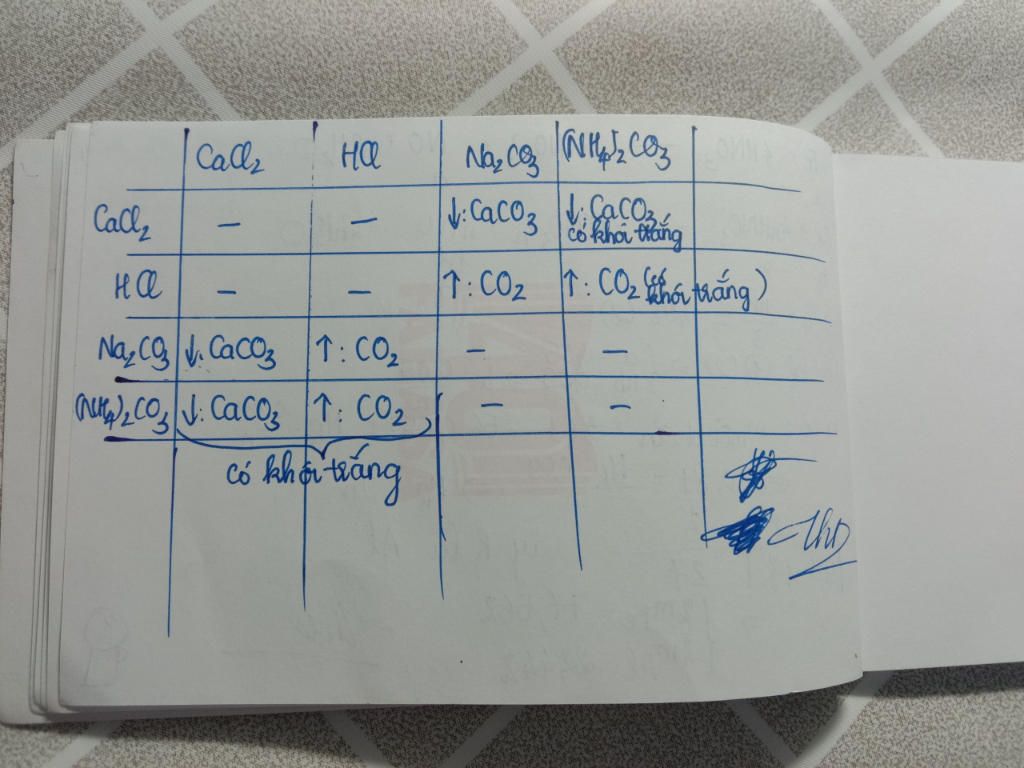 CaCl2 HCl Na2CO3 (NH4)2CO3
CaCl2 – – ↓: CaCO3 ↓: CaCO3
có khói trắng
HCl – – ↑: CO2 ↑: CO2 (có khói trắng)
Na2CO3 ↓: CaCO3 ↑: CO2 – –
(NH4)2CO3 ↓: CaCO3 ↑: CO2 – –
có khói trắng